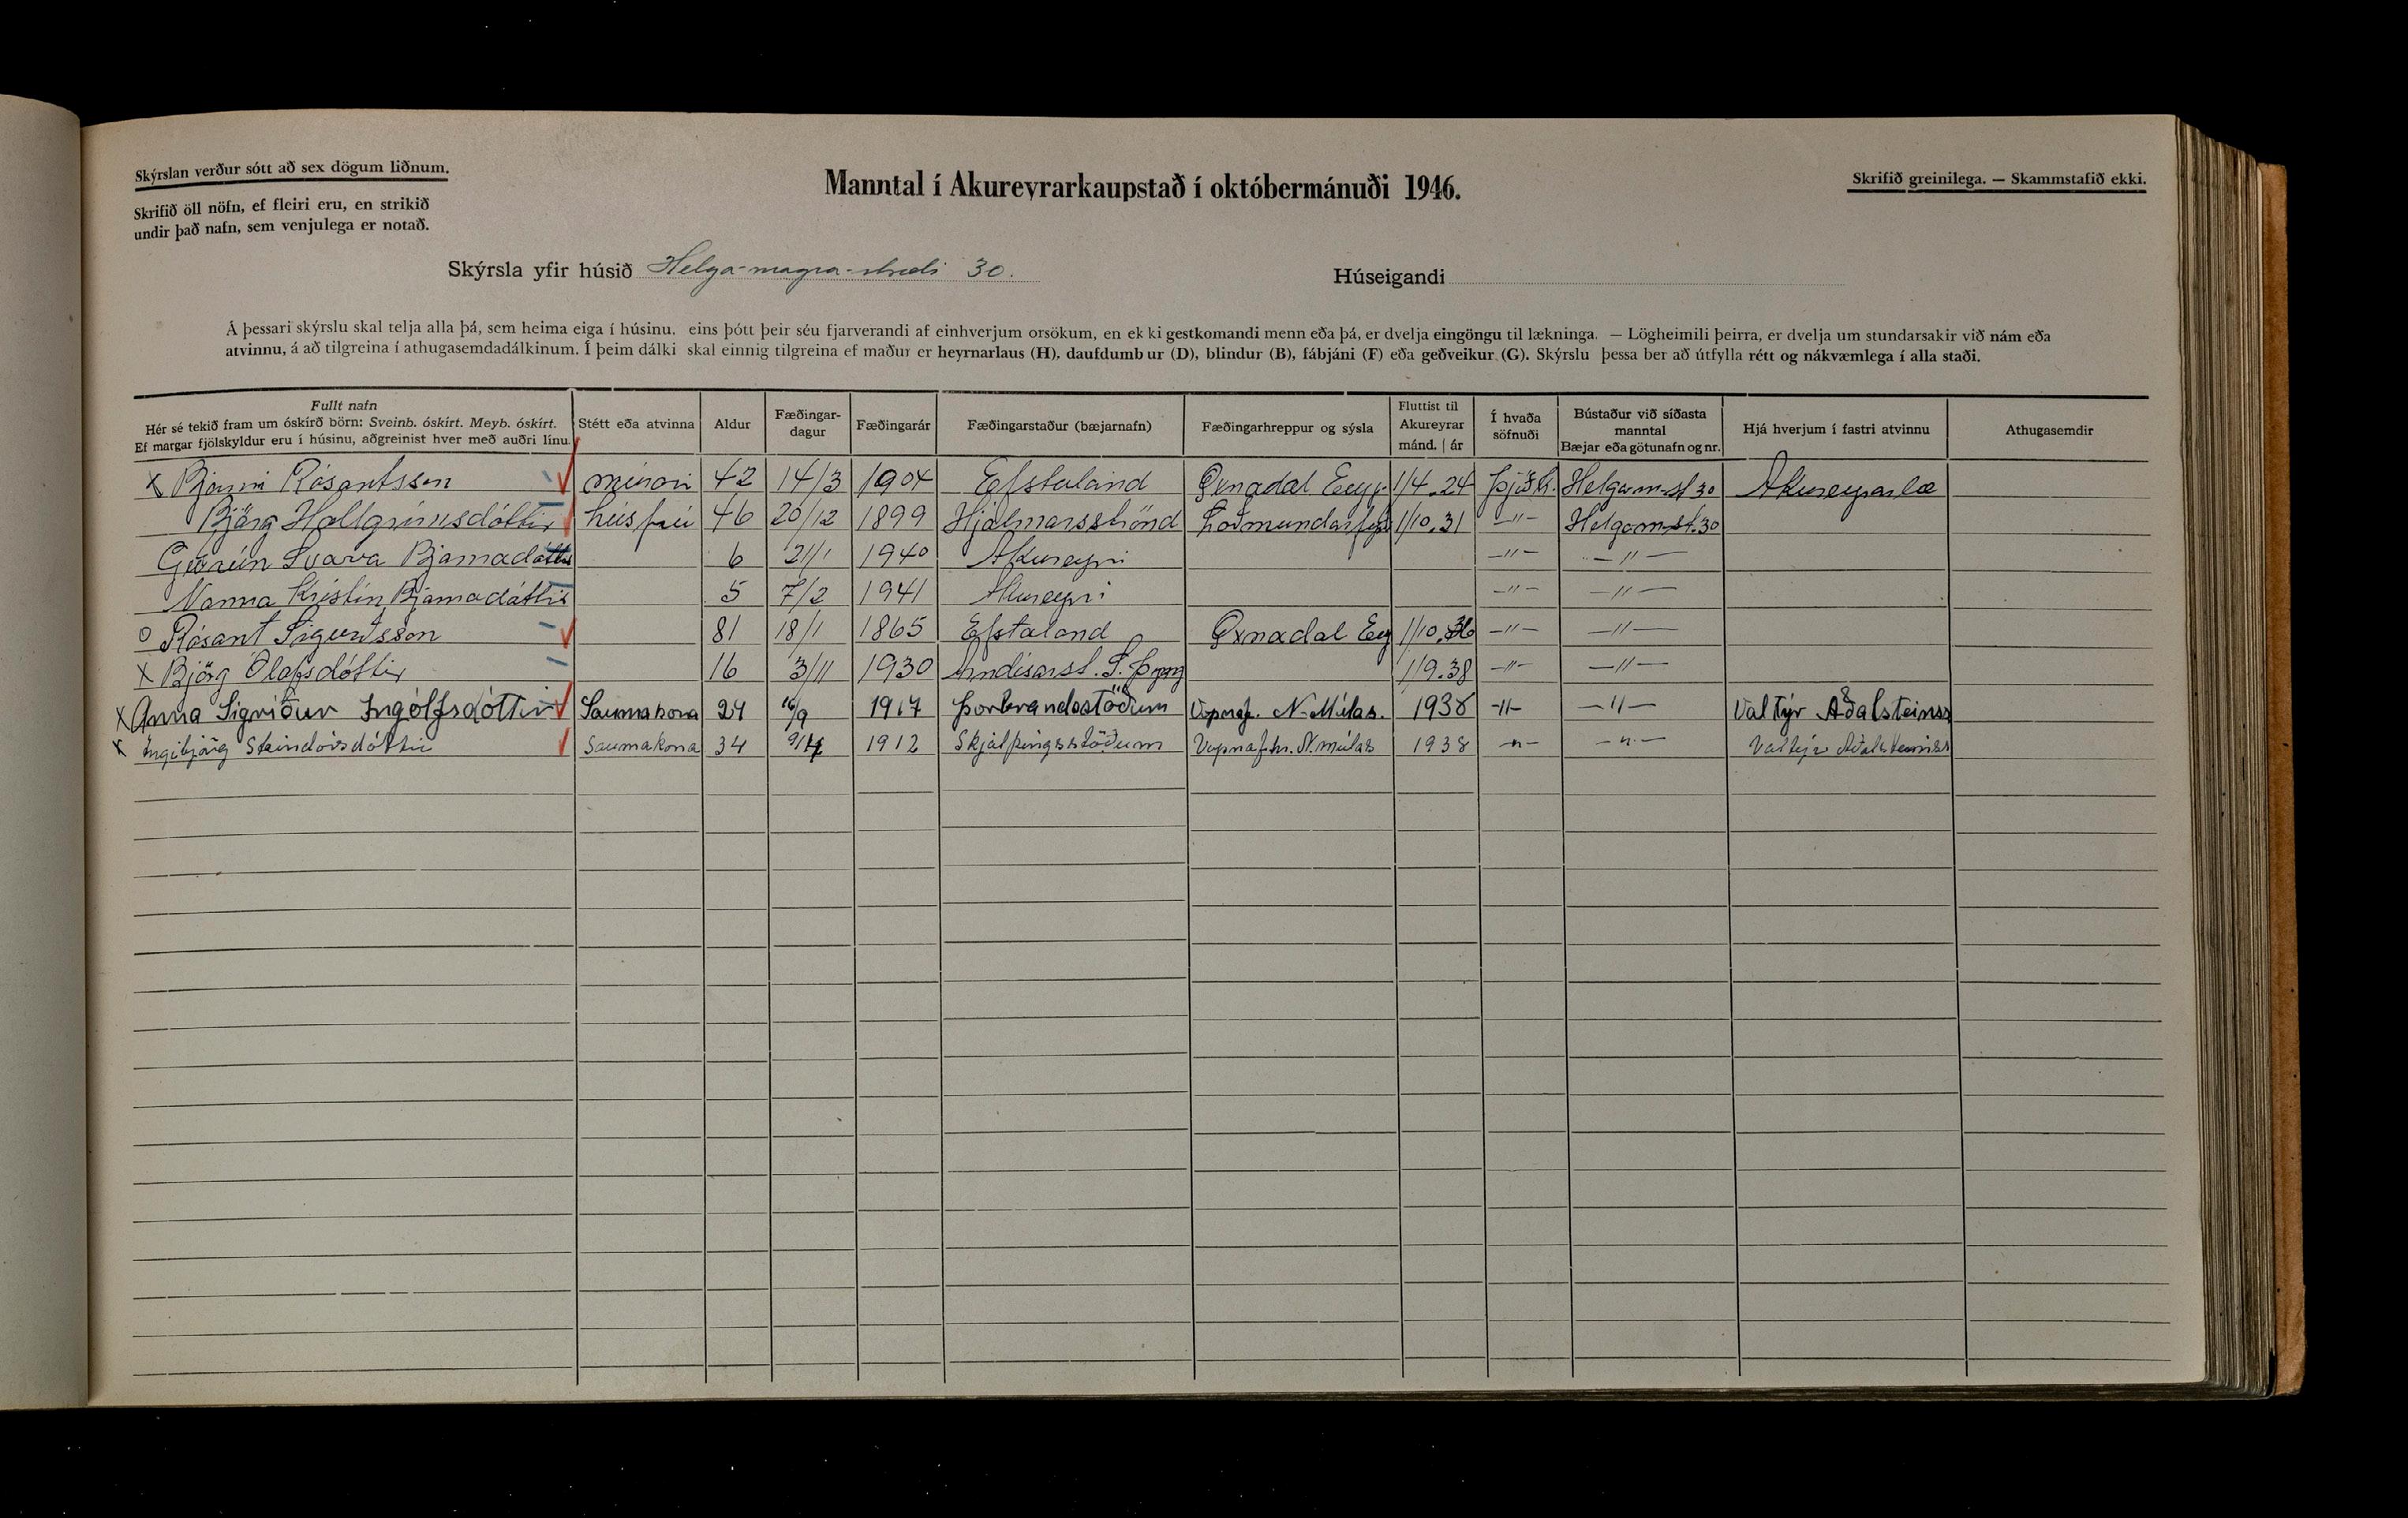 Skýrslan verður sótt að sex dögum liðnum.
Manntal í Akureyrarkaupstað í októbermánuði 1946.
Skrifið greinilega. — Skammstafið ekki.
Skrifið öll nöfn, ef fleiri eru, en strikið
undir það nafn, sem venjulega er notað.
Skýrsla yfir húsið Helga-magra-stræti 30.
Húseigandi
Á þessari skýrslu skal telja alla þá, sem heima eiga í húsinu, eins þótt þeir séu fjarverandi af einhverjum orsökum, en ekki gestkomandi menn eða þá, er dvelja eingöngu til lækninga. — Lögheimili þeirra, er dvelja um stundarsakir við nám eða
atvinnu, á að tilgreina í athugasemdadálkinum. Í þeim dálki skal einnig tilgreina ef maður er heyrnarlaus (H), daufdumbur (D), blindur (B), fábjáni (F) eða geðveikur (G). Skýrslu þessa ber að útfylla rétt og nákvæmlega í alla staði.
Fullt nafn
Hér sé tekið fram um óskírð börn: Sveinb. óskírt. Meyb. óskírt.
Ef margar fjölskyldur eru í húsinu, aðgreinist hver með auðri línu.
Stétt eða atvinna
Aldur
Fæðingar-
dagur
Fæðingarár
Fæðingarstaður (bæjarnafn)
Fæðingarhreppur og sýsla
Fluttist til
Akureyrar
mánd. | ár
Í hvaða
söfnuði
Bústaður við síðasta
manntal
Bæjar eða götunafn og nr.
Hjá hverjum í fastri atvinnu
Athugasemdir
x Bjarni Rósantsson múrari 42 14/3 1904 Efstaland Öxnadal Eyj. 1/4.24 Þjóðk. Helgam-st 30 Akureyrarbæ
Björg Hallgrímsdóttir húsfrú 46 20/12 1899 Hjálmarsströnd Loðmundarfj 1/10.31 -"- Helgam-st.30
Guðrún Svava Bjarnadóttir 6 21/1 1940 Akureyri -"- -"-
Nanna Kristín Bjarnadóttir 5 7/2 1941 Akureyri -"- -"-
o Rósant Sigurðsson 81 18/1 1865 Efstaland Öxnadal Eyj 1/10.36 -"- -"-
x Björg Ólafsdóttir 16 3/11 1930 S. Þing 1/9.38 -"- -"-
x Anna Sigríður Ingólfsdóttir Saumakona 29 16/9 1917 Þorbrandsstöðum Vopnaf. N-Múlas. 1938 -"- -"- Valtýr Aðalsteinss
x Ingibjörg Steindórsdóttir Saumakona 34 9/4 1912 Skjalþingsstöðum Vopnafhr. N.múlas 1938 -"- -"- Valtýr Aðalsteinss